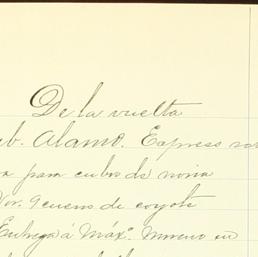 De la vuelta
b. Alamo. Express
para cubo de noria
Por. 9 cueros de coyote
Entrega á Máxº. Moreno en